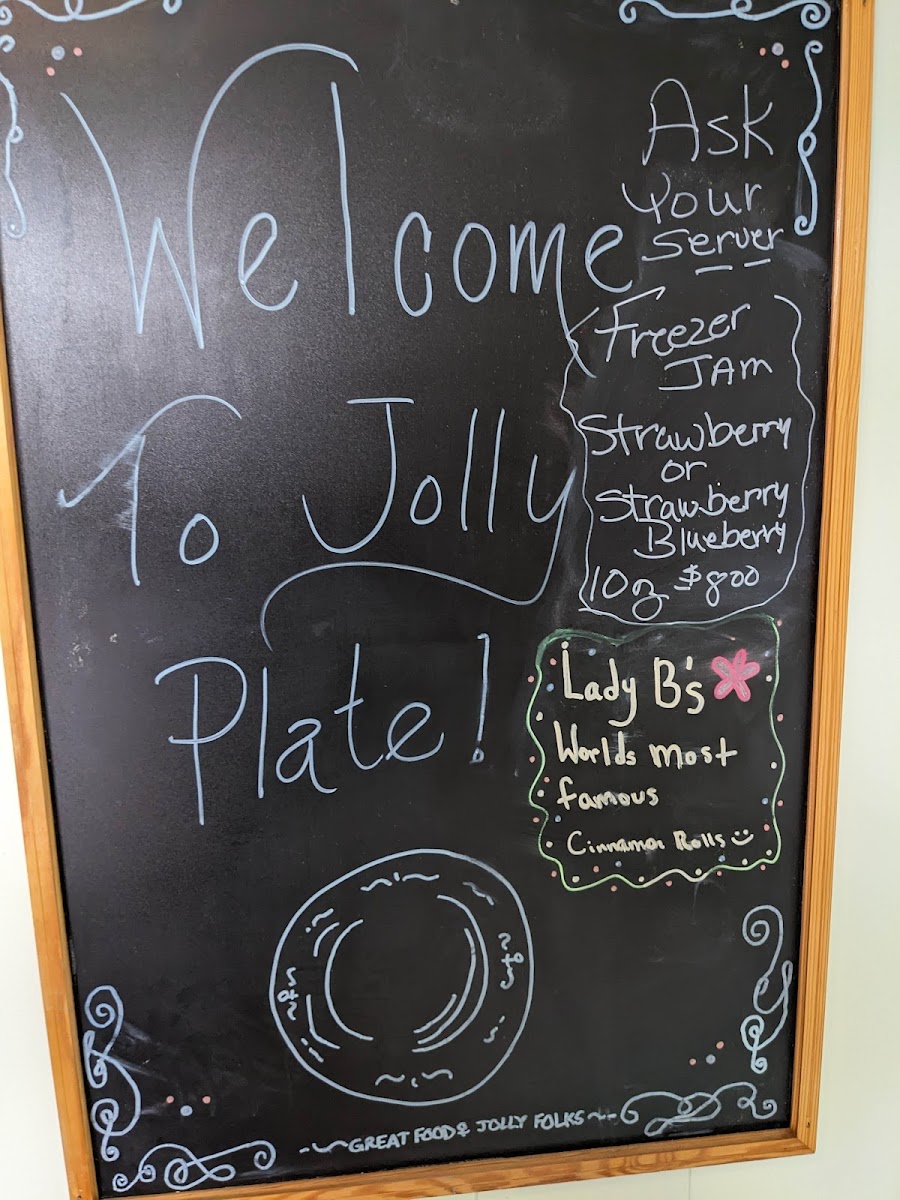 Welcome
To Jolly
Plate!
Ask
Your
Server
Freezer
JAm
Strawberry
or
Strawberry
Blueberry
10oz $800
Lady B's
Worlds most
famous
Cinnamon Rolls :)
GREAT FOOD & JOLLY FOLKS